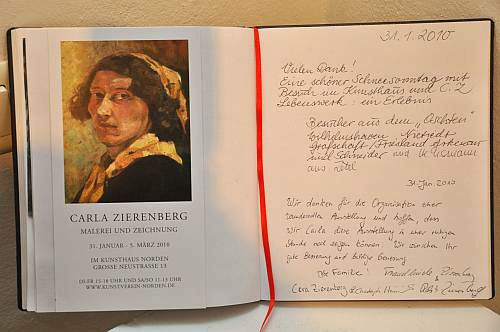 CARLA ZIERENBERG
MALEREI UND ZEICHNUNG
31. JANUAR - 5. MÄRZ 2010
IM KUNSTHAUS NORDEN
GROSSE NEUSTRASSE 13
DI-FR 15-18 UHR UND SA/SO 11-15 UHR
WWW.KUNSTVEREIN-NORDEN.DE
31.1.2010
Vielen Dank!
Eine schöner Schneesonntag mit
Besuch im Kunsthaus und C. Z
Lebenswerk: ein Erlebnis
Besucher aus dem
Wilhelmshaven
Grafschaft / Friesland
und Schneider und
aus Zetel
31. Jan. 2010
Wir danken für die Organisation einer
wundervollen Ausstellung und hoffen, dass
wir Carla diese Ausstellung in einer ruhigen
Stunde noch zeigen können. Wir wünschen ihr
gute Besserung und baldige Genesung
Die Familie!
Carla Zierenberg